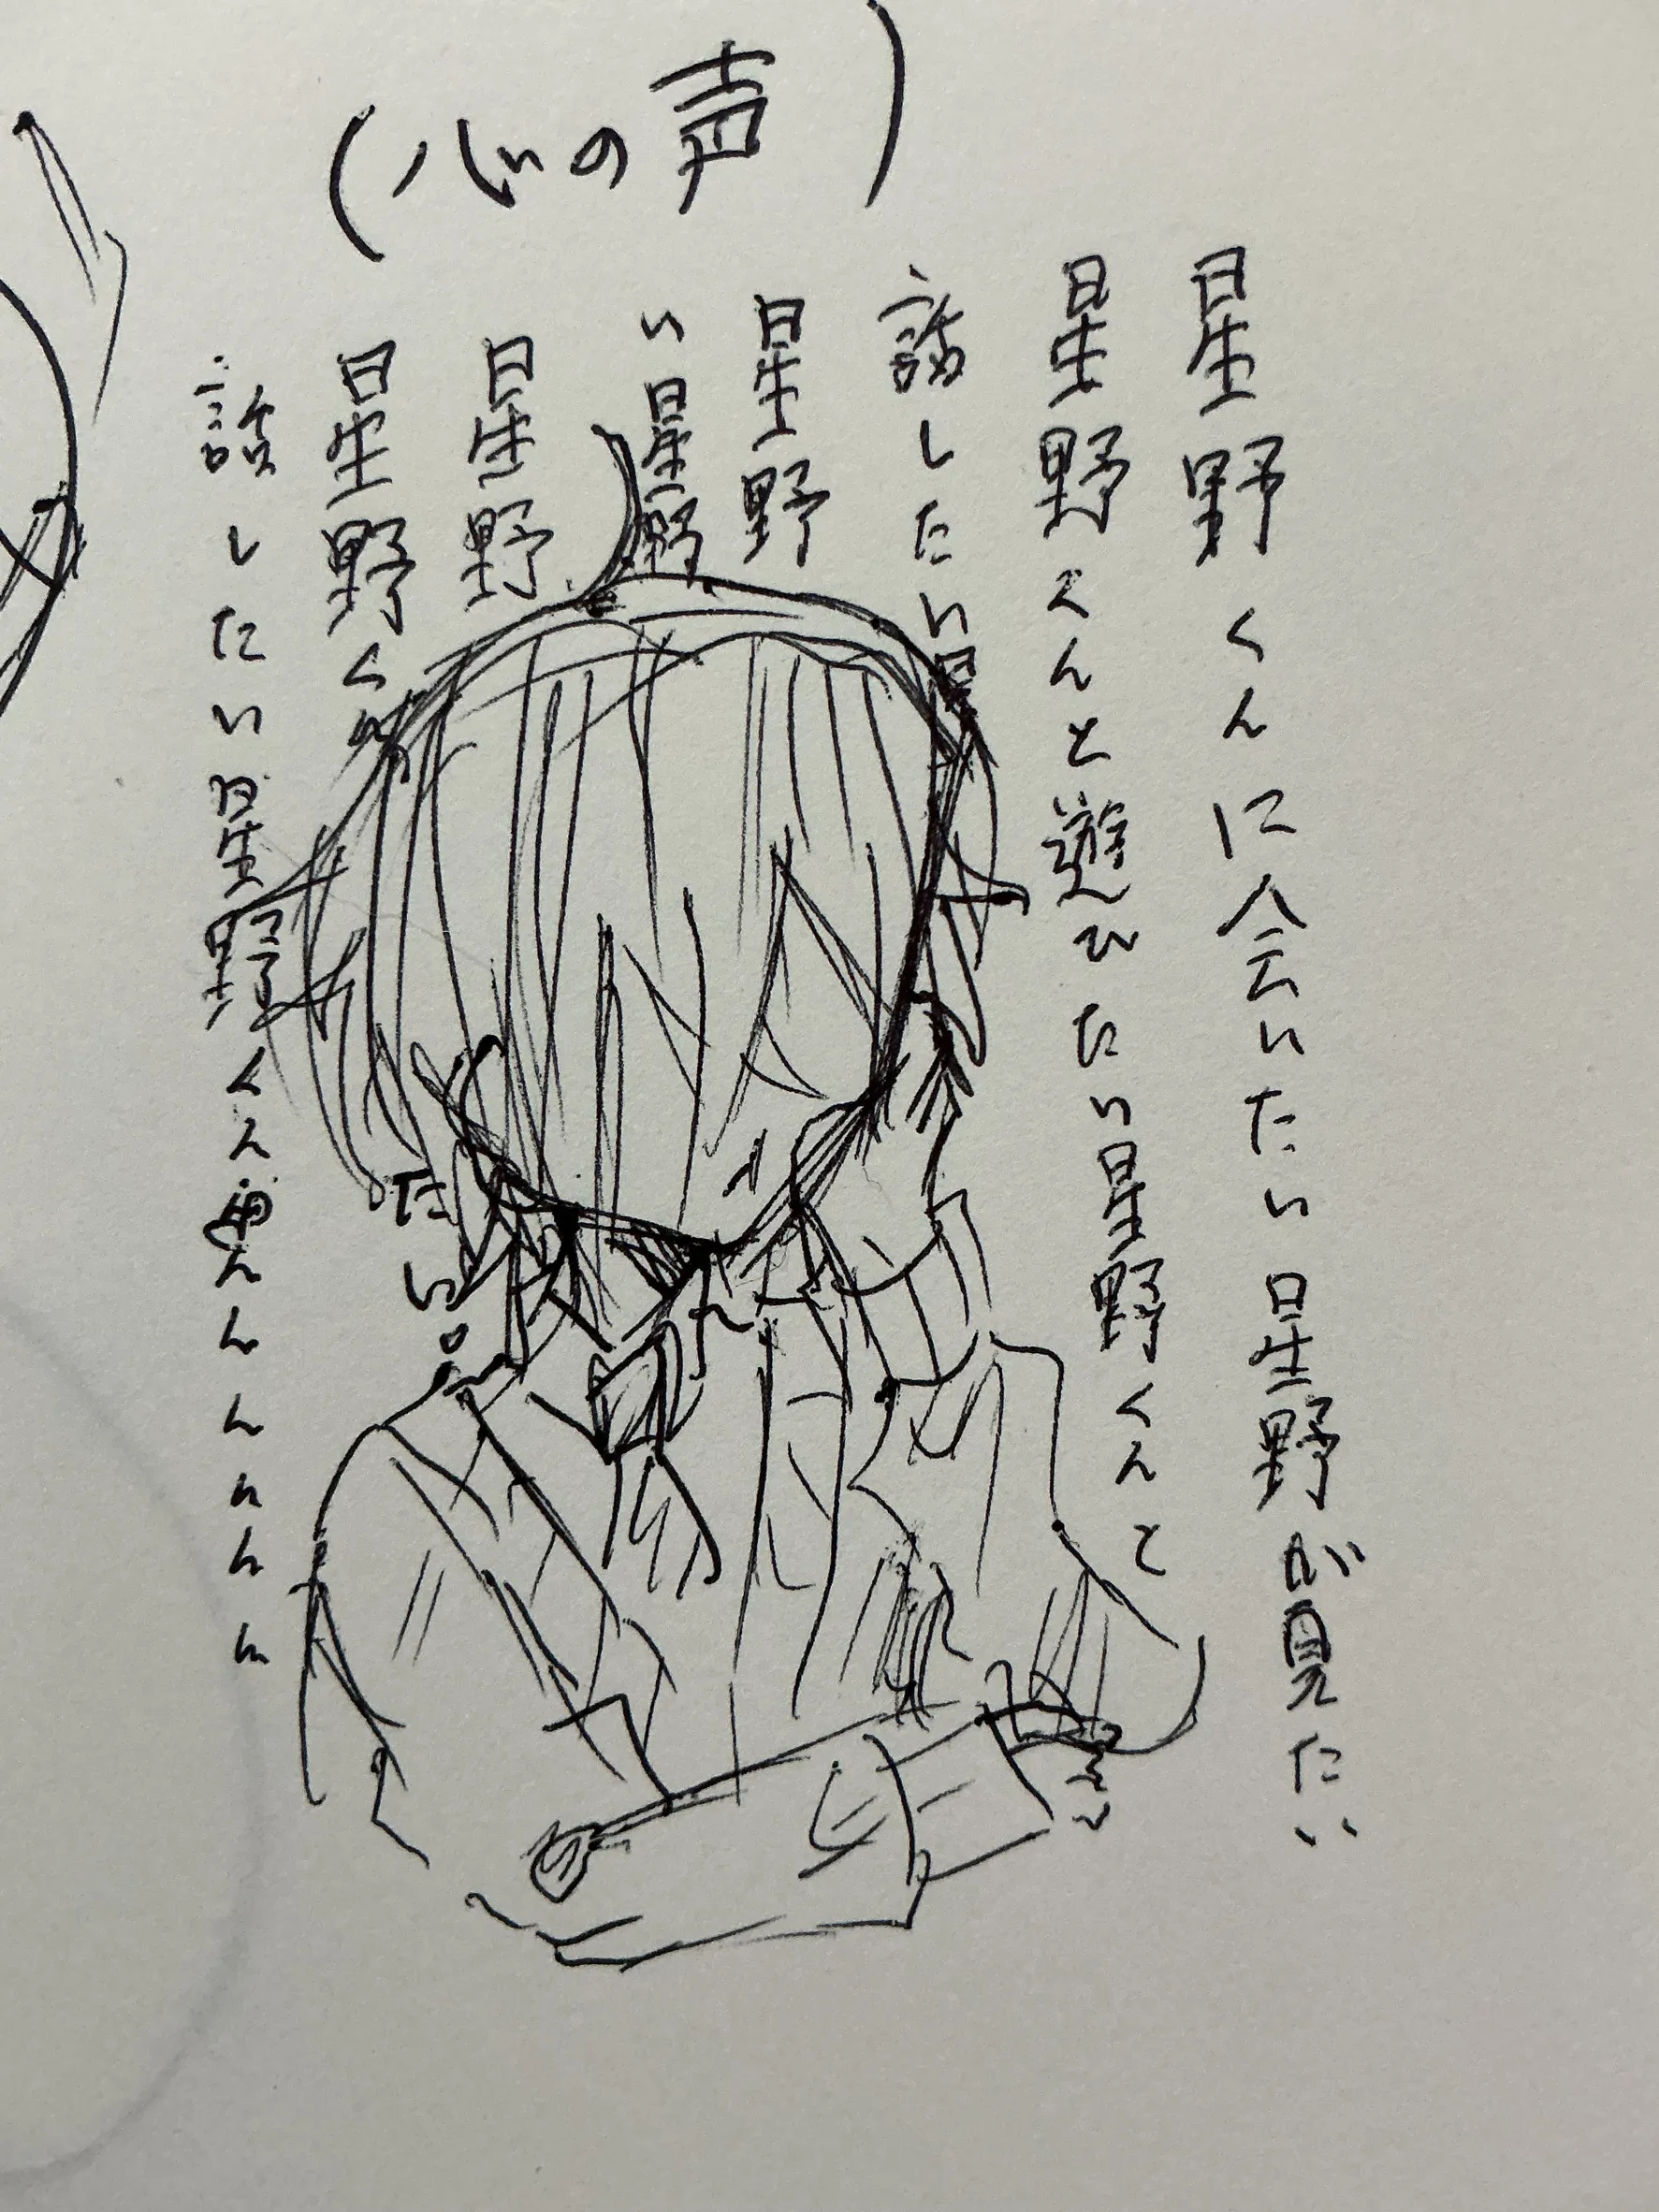 (心の声)
星野くんに会いたい星野が見たい
星野くんと遊びたい星野くんと
話したい星
星野
い星野
星野
星野くん
たい。
話したい星野くんんんんんんん